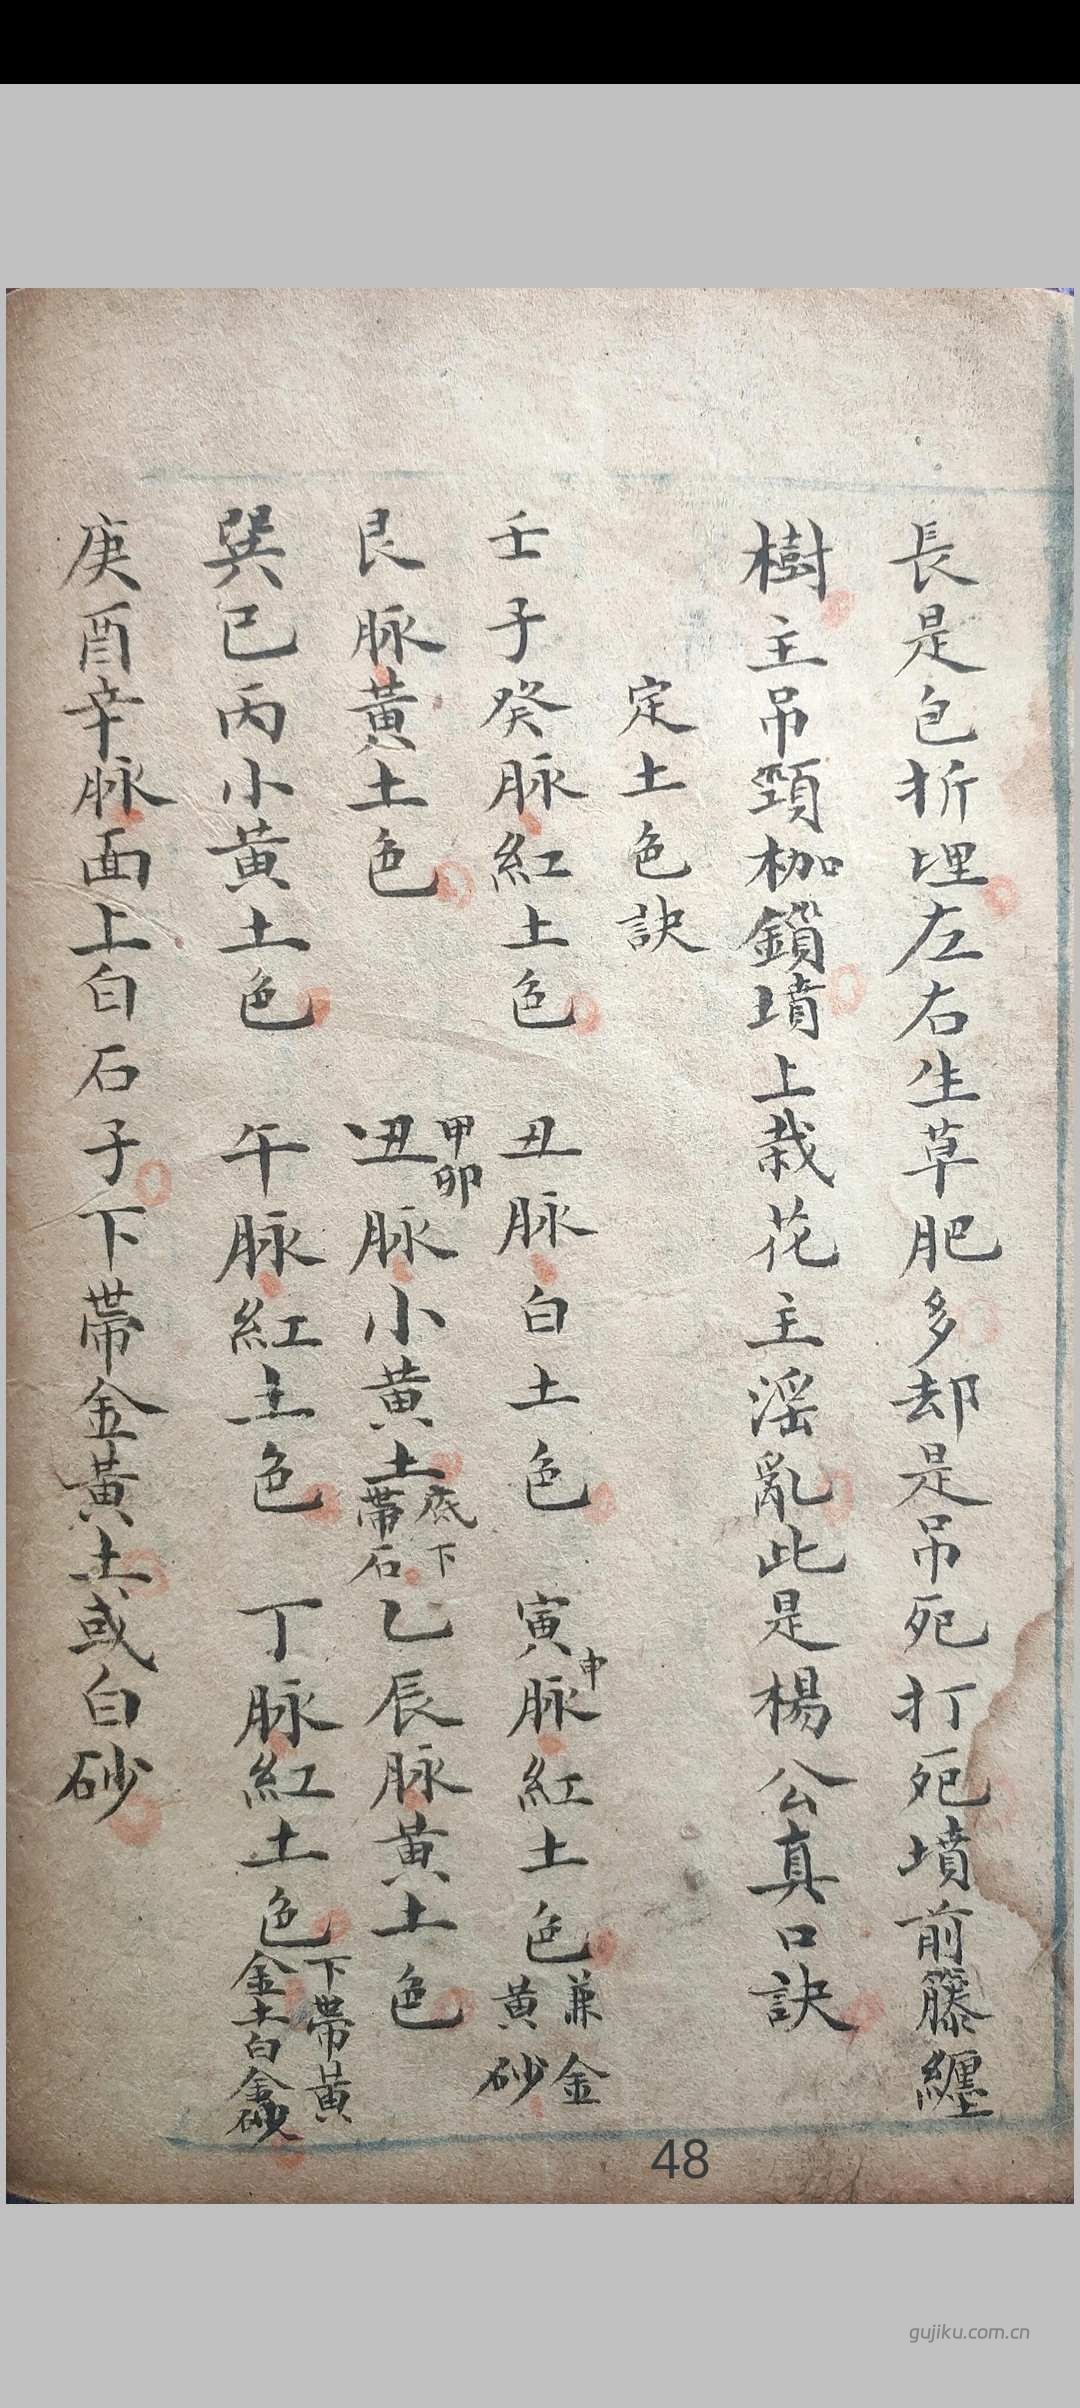 長是包折埋左右生草肥多却是吊死打死墳前籐纏
樹主吊頸枷鎖墳上栽花主淫亂此是楊公真口訣
定土色訣
壬子癸脉紅土色 丑脉白土色 寅申脉紅土色兼金黄砂
艮脉黃土色 甲卯丑脉小黄土底下帶石乙辰脉黄土色
巽巳丙小黄土色 午脉紅土色 丁脉紅土色下帶黃金土白金砂
庚酉辛脉面上白石子下帶金黃土或白砂
48
gujiku.com.cn